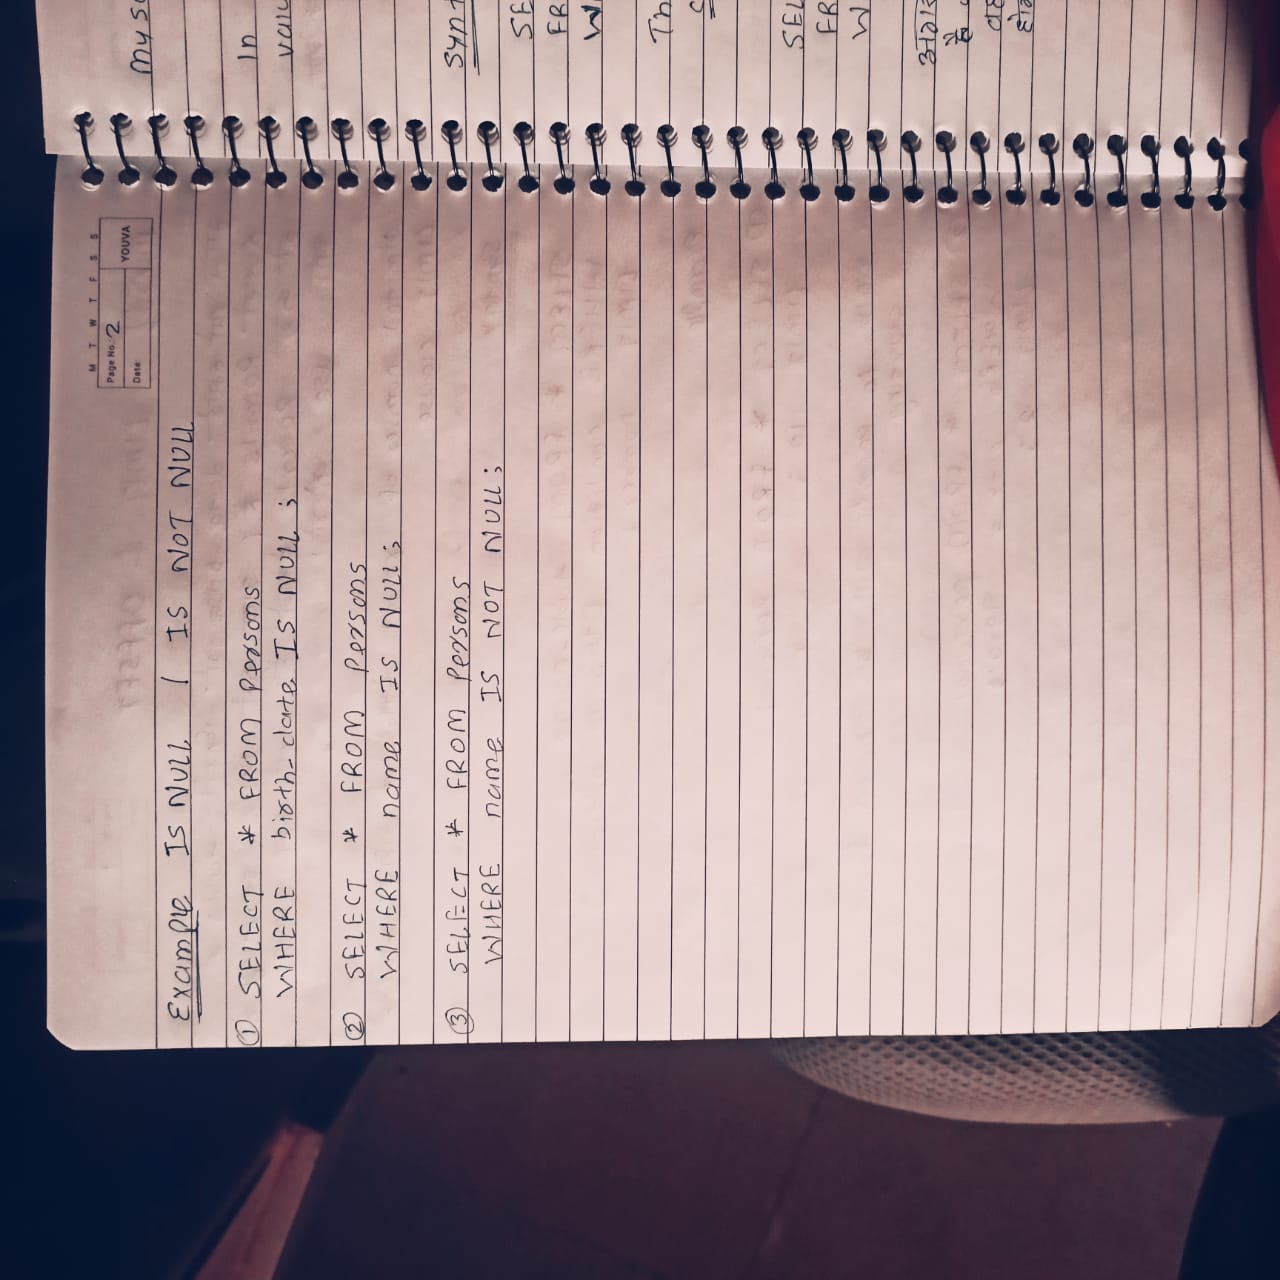 M T W T F S S
Page No.: 2
YOUVA
Date:
Example IS NULL / IS NOT NULL
① SELECT * FROM Persons
WHERE birth_date IS NULL ;
② SELECT * FROM Persons
WHERE name IS NULL ;
③ SELECT * FROM Persons
WHERE name IS NOT NULL ;
My
In
Th